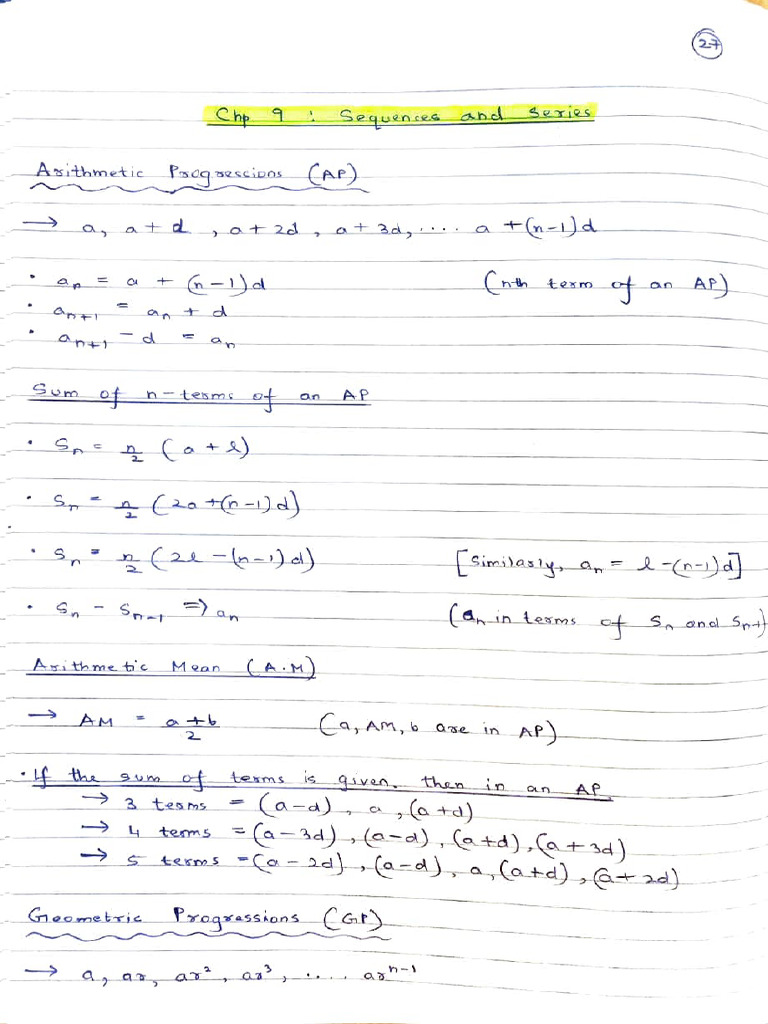 27
Chp 9 : Sequences and Series
Arithmetic Progressions (AP)
→ a, a + d , a + 2d , a + 3d, .... a + (n-1)d
• aₙ = a + (n-1)d (nth term of an AP)
• aₙ₊₁ = aₙ + d
• aₙ₊₁ - d = aₙ
Sum of n-terms of an AP
• Sₙ = n/2 (a + l)
• Sₙ = n/2 (2a + (n-1)d)
• Sₙ = n/2 (2l - (n-1)d) [Similarly, aₙ = l - (n-1)d]
• Sₙ - Sₙ₋₁ => aₙ (aₙ in terms of Sₙ and Sₙ₋₁)
Arithmetic Mean (A.M)
→ AM = a + b / 2 (a, AM, b are in AP)
• If the sum of terms is given, then in an AP
→ 3 terms = (a-d), a, (a+d)
→ 4 terms = (a-3d), (a-d), (a+d), (a+3d)
→ 5 terms = (a-2d), (a-d), a, (a+d), (a+2d)
Geometric Progressions (GP)
→ a, ar, ar², ar³, .... arⁿ⁻¹